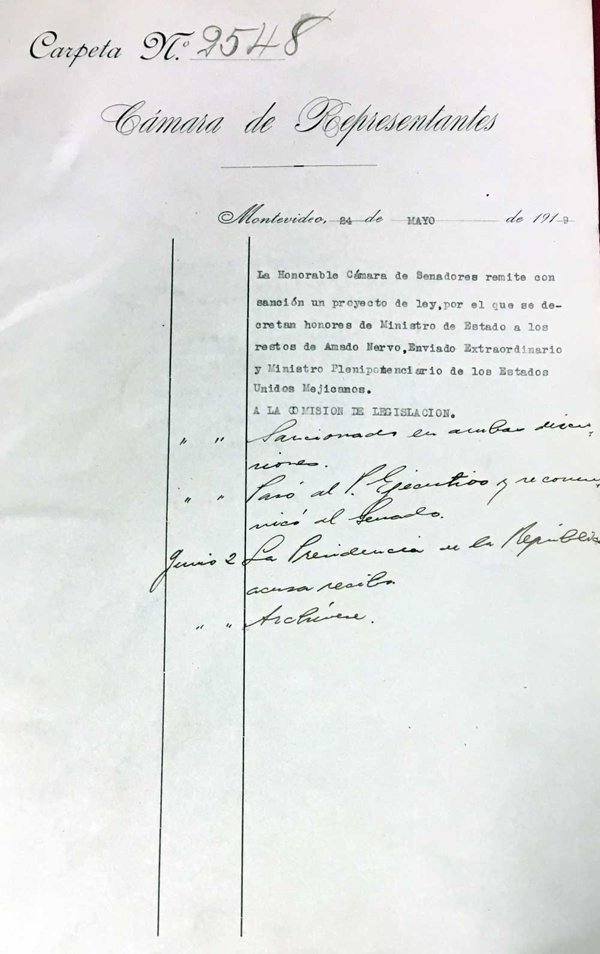 Carpeta N.º 2548
Cámara de Representantes
Montevideo, 24 de MAYO de 1919
La Honorable Cámara de Senadores remite con
sanción un proyecto de ley,por el que se de-
cretan honores de Ministro de Estado a los
restos de Amado Nervo,Enviado Extraordinario
y Ministro Plenipotenciario de los Estados
Unidos Mejicanos.
A LA COMISION DE LEGISLACION.
" " Sancionado en ambas discu-
siones.
" " Pasó al P. Ejecutivo y recomu-
nicó al Senado.
Junio 2 La Presidencia de la República
acusa recibo
" " Archívese.